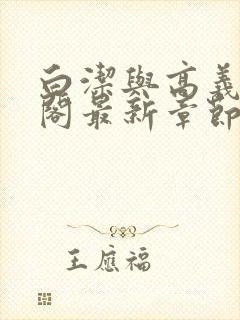 白潔與高義
閣最新章節
王應福